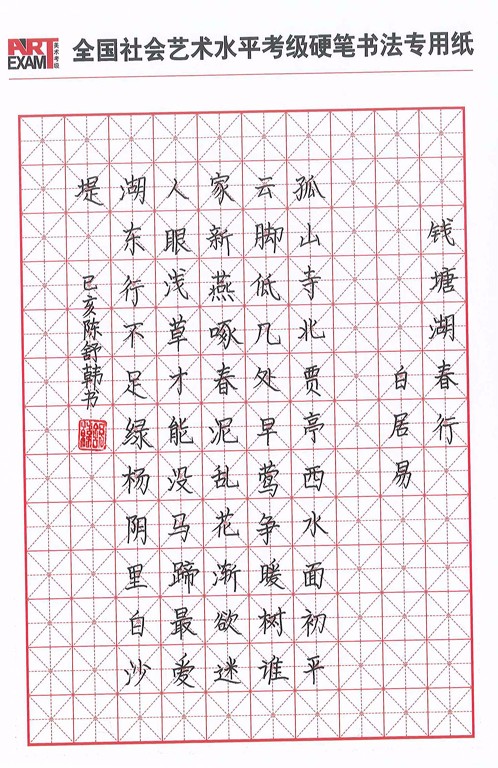 ART
EXAM
美术考级
全国社会艺术水平考级硬笔书法专用纸
钱塘湖春行
白居易
孤山寺北贾亭西水面初平
云脚低几处早莺争暖树谁
家新燕啄春泥乱花渐欲迷
人眼浅草才能没马蹄最爱
湖东行不足绿杨阴里白沙
堤
己亥陈舒韩书